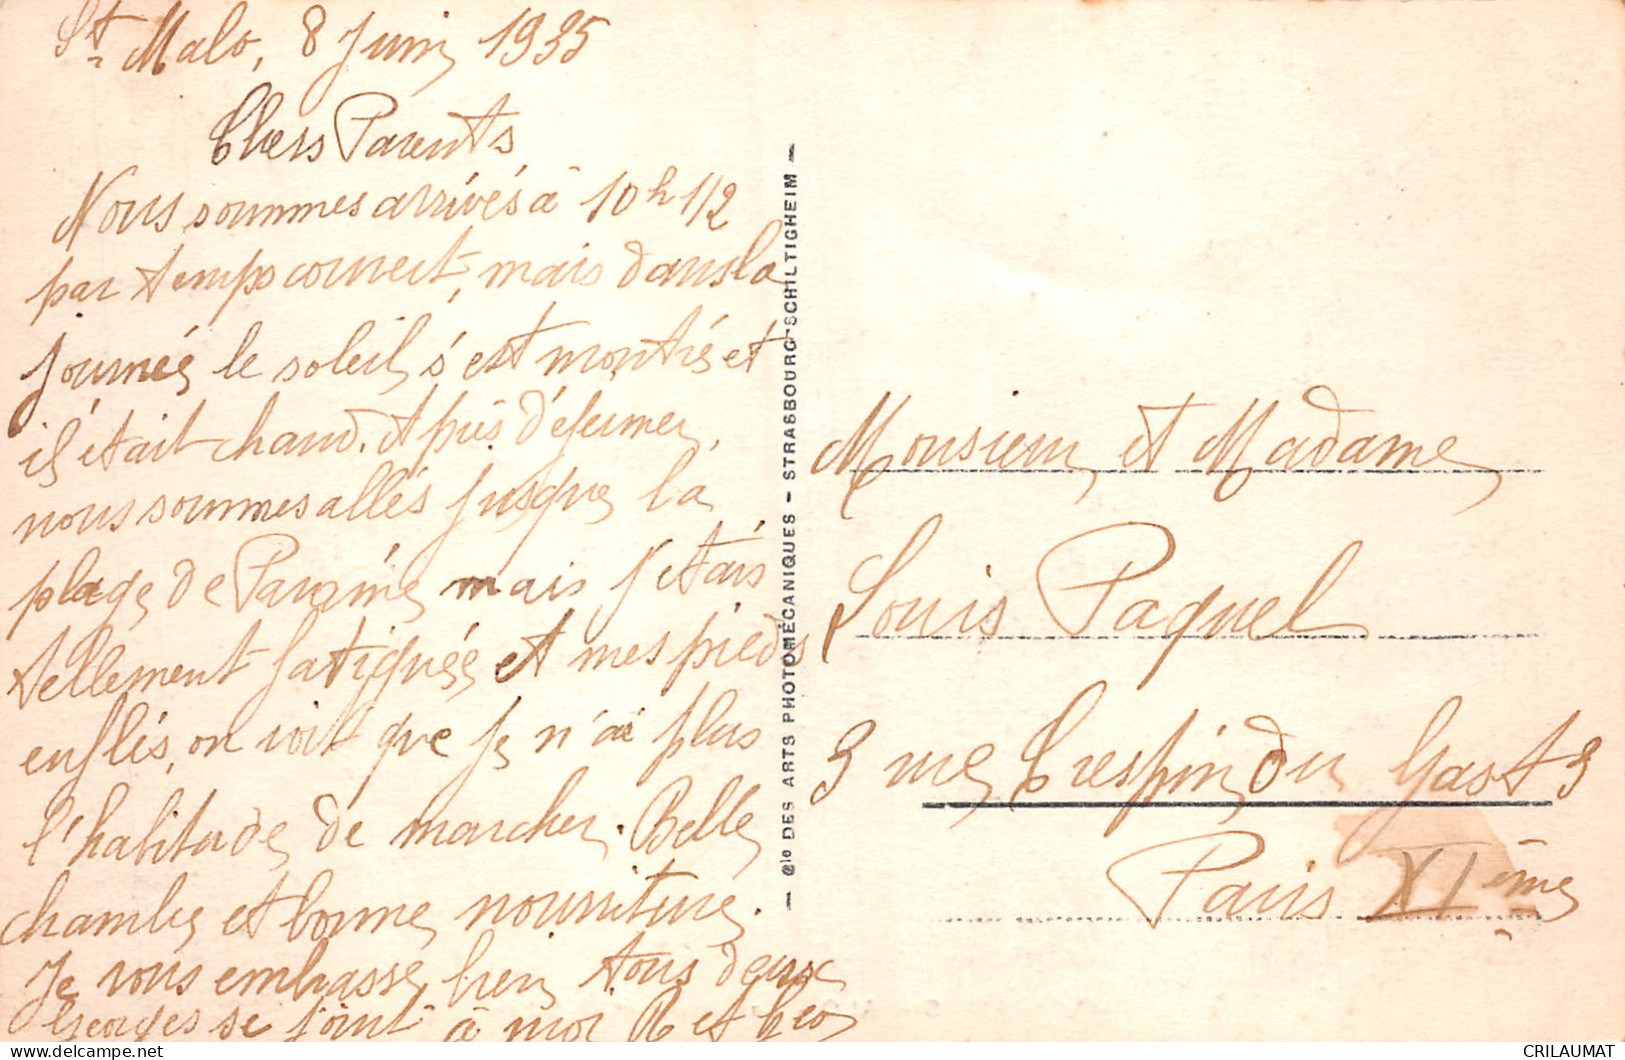 St Malo, 8 Juin 1935
Chers Parents
Nous sommes arrivés à 10 h 1/2
par temps couvert, mais dans la
journée le soleil s'est montré et
il était chaud. Après déjeuner,
nous sommes allés jusque la
plage de Paramé mais j'étais
tellement fatiguée et mes pieds
enflés, on voit que je n'ai plus
l'habitude de marcher. Belle
chambre et bonne nourriture.
Je vous embrasse bien tous deux
Georges se joint à moi et
— Cie DES ARTS PHOTOMÉCANIQUES - STRASBOURG-SCHILTIGHEIM —
Monsieur et Madame
Louis Paquel
3 rue Crespin du Gast 3
Paris XIème
CRILAUMAT